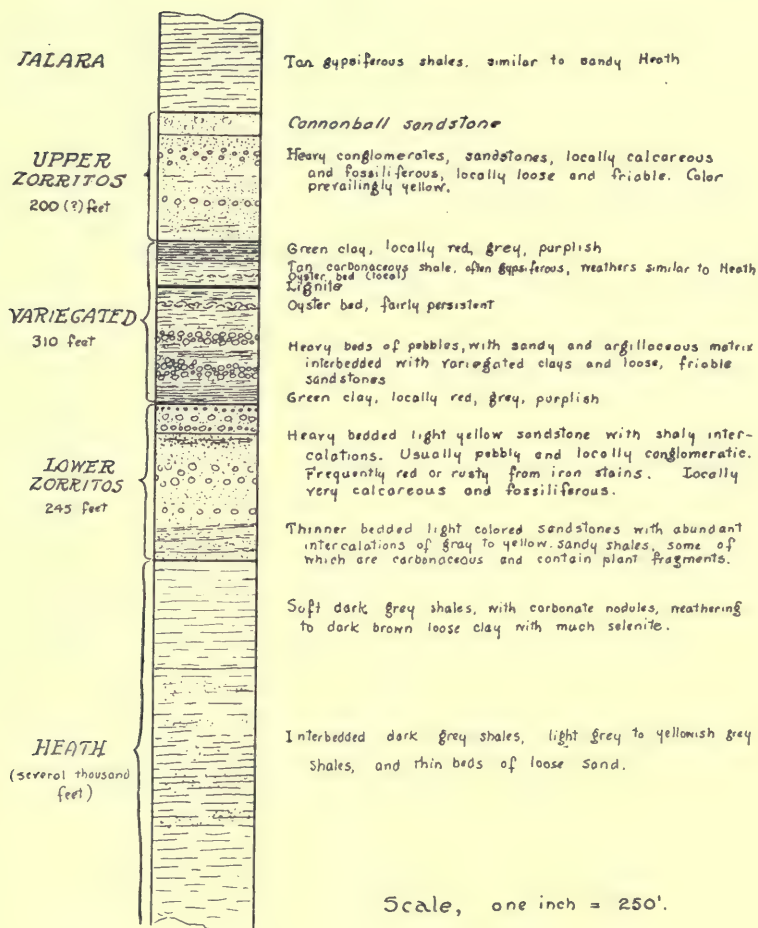 TALARA
Tan gypsiferous shales. similar to sandy Heath
Cannonball sandstone
UPPER
ZORRITOS
200 (?) feet
Heavy conglomerates, sandstones, locally calcareous
and fossiliferous, locally loose and friable. Color
prevailingly yellow.
Green clay, locally red, grey, purplish
Tan carbonaceous shale, often gypsiferous, weathers similar to Heath
Oyster bed (local)
Lignite
Oyster bed, fairly persistent
VARIEGATED
310 feet
Heavy beds of pebbles, with sandy and argillaceous matrix
interbedded with variegated clays and loose, friable
sandstones
Green clay, locally red, grey, purplish
LOWER
ZORRITOS
245 feet
Heavy bedded light yellow sandstone with shaly inter-
calations. Usually pebbly and locally conglomeratic.
Frequently red or rusty from iron stains. Locally
very calcareous and fossiliferous.
Thinner bedded light colored sandstones with abundant
intercalations of gray to yellow. sandy shales, some of
which are carbonaceous and contain plant fragments.
Soft dark grey shales, with carbonate nodules, weathering
to dark brown loose clay with much selenite.
HEATH
(several thousand
feet)
Interbedded dark grey shales, light grey to yellowish grey
shales, and thin beds of loose sand.
Scale, one inch = 250'.